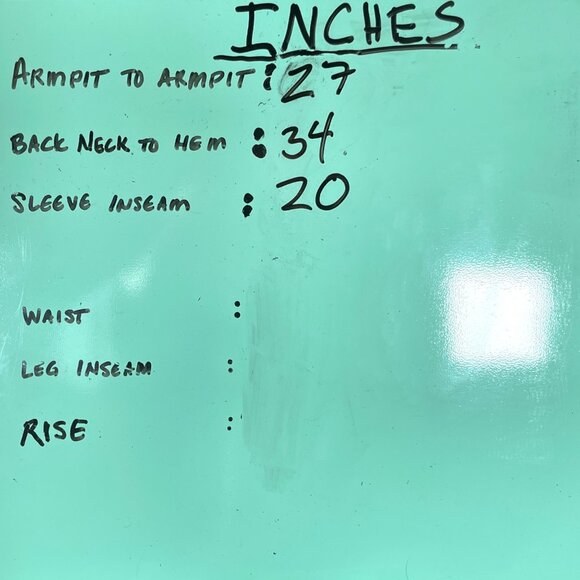 INCHES
ARMPIT TO ARMPIT : 27
BACK NECK TO HEM : 34
SLEEVE INSEAM : 20
WAIST :
LEG INSEAM :
RISE :